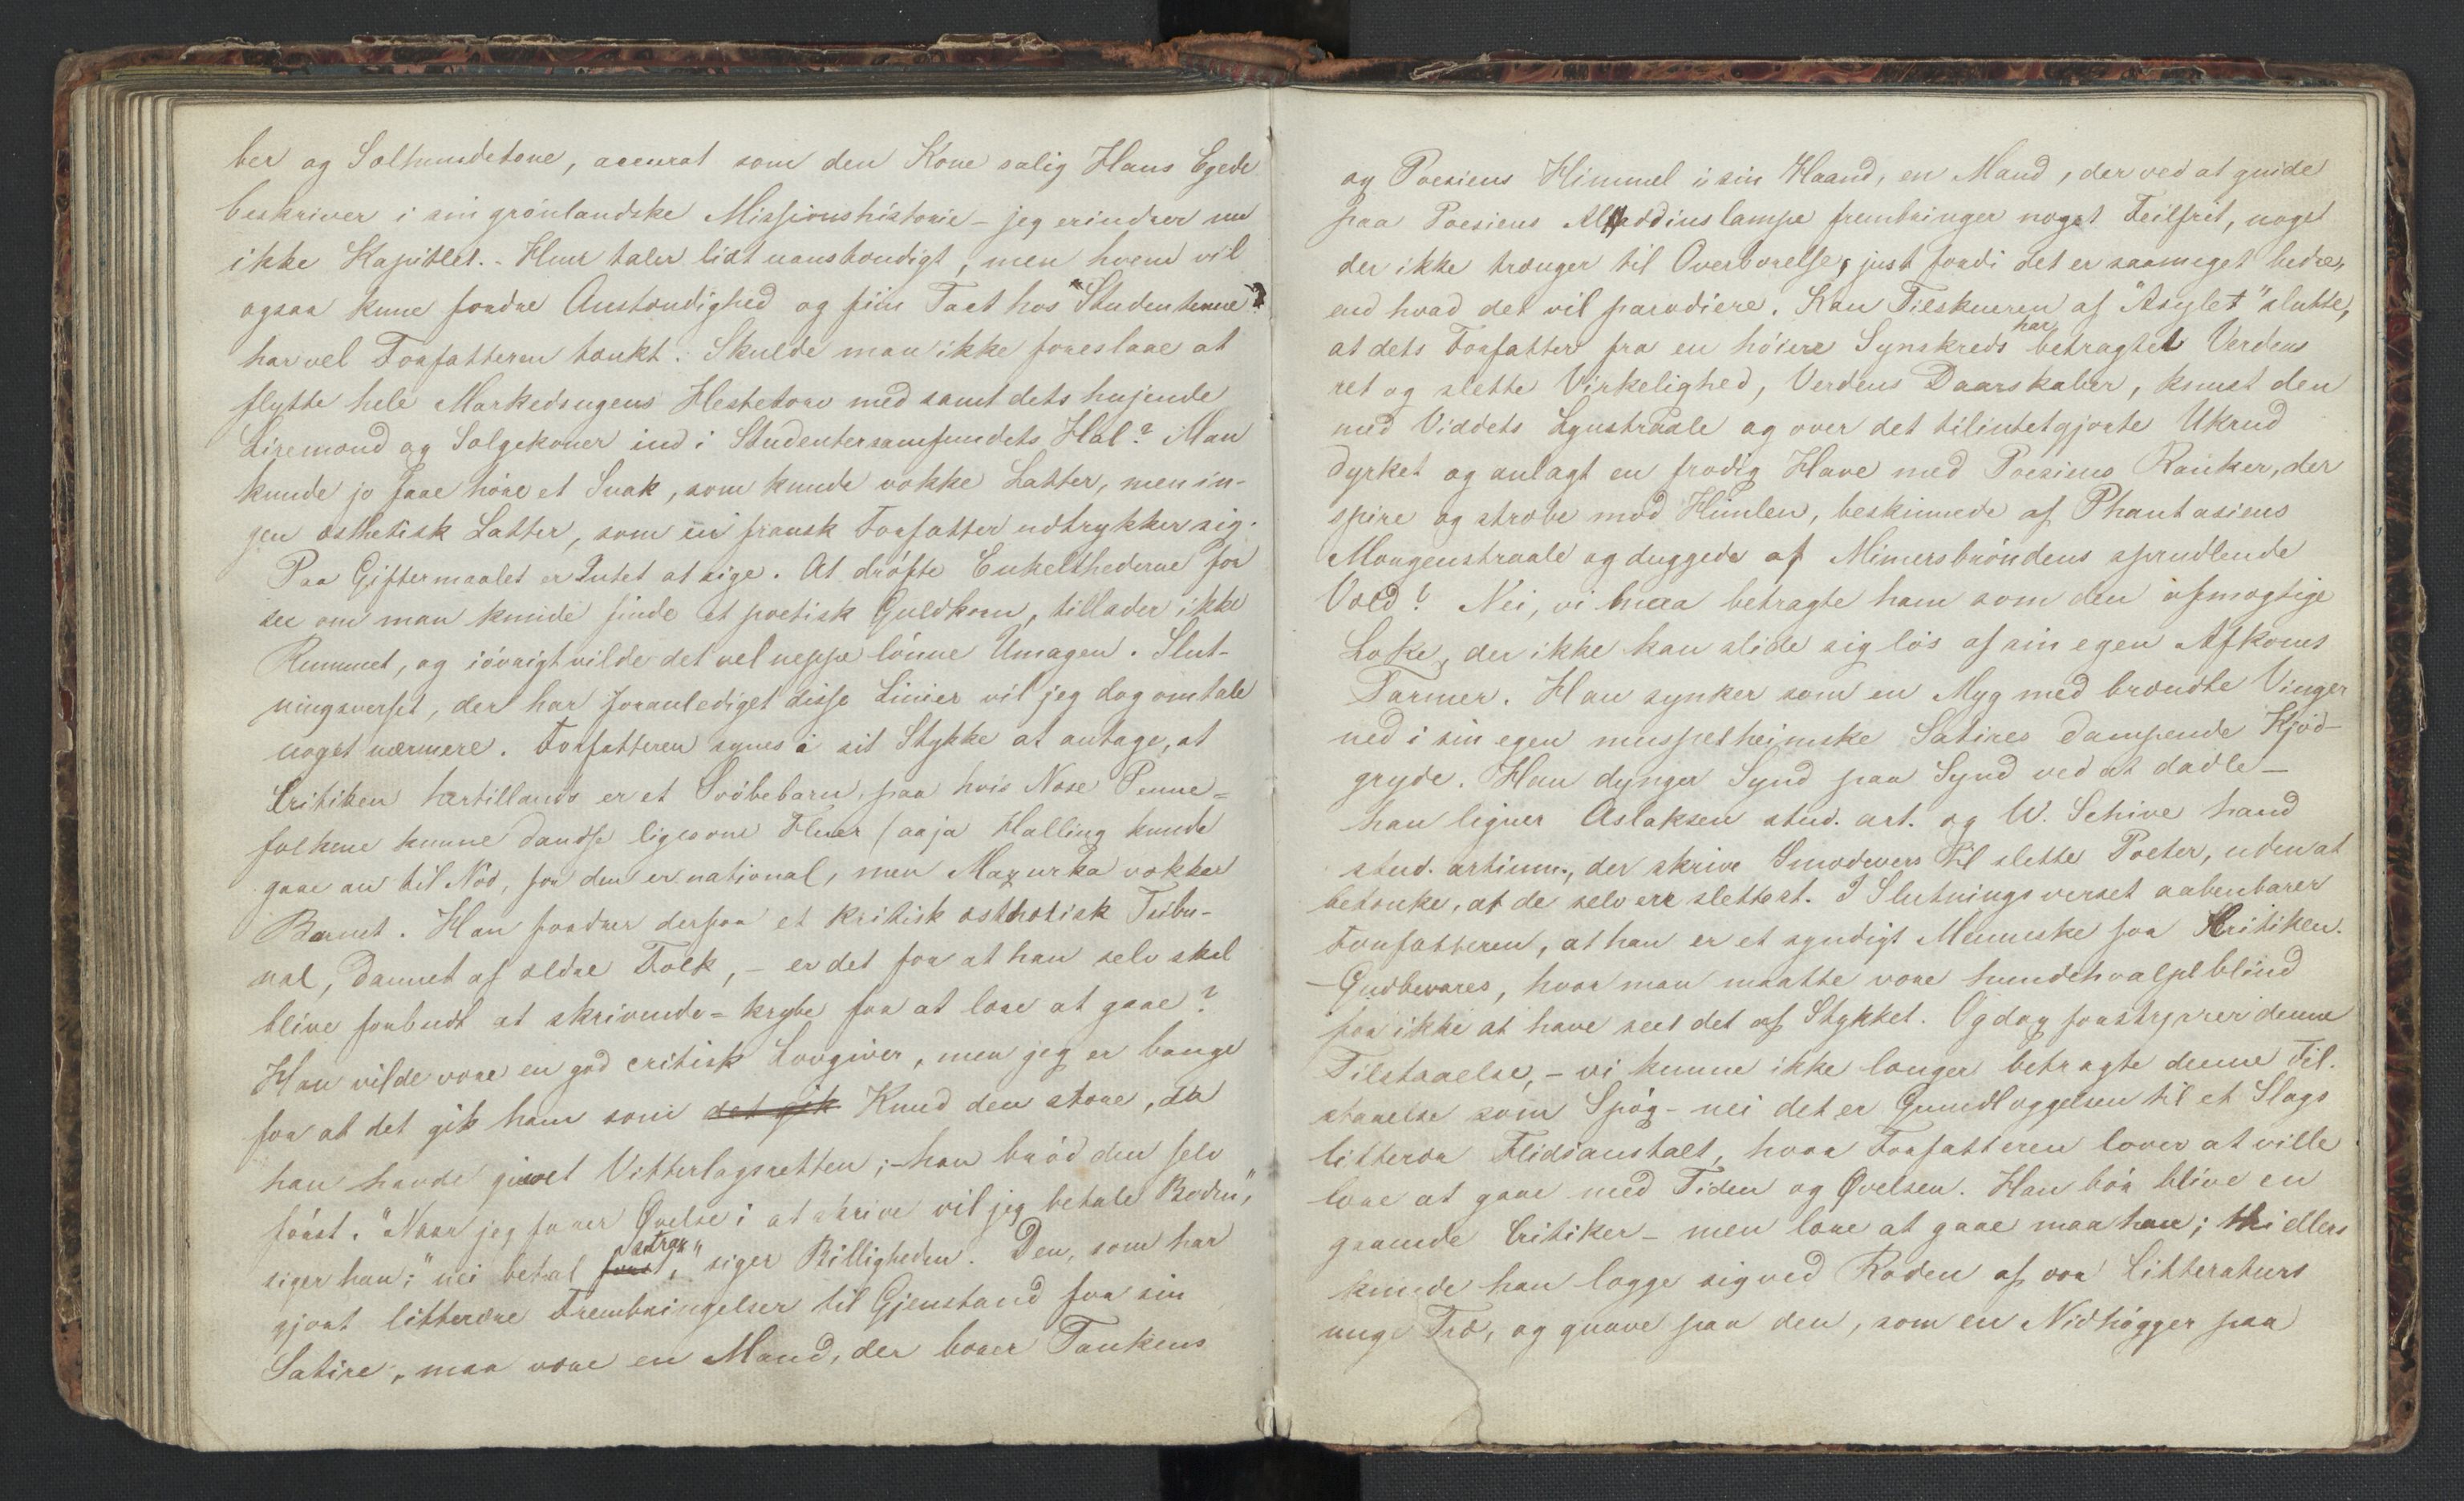 ber og Sælhundetave, accurat som den Kone salig Hans Egede
beskriver i sin grönlandske Missionshistorie – jeg erindrer nu
ikke Kapitlet. – Hun taler lidt uanstændigt, men hvem vil
ogsaa kunne fordre Anstændighed og fiin Tact hos "Studenterne"?
har vel Forfatteren tænkt. Skulde man ikke foreslaae at
flytte hele Markedsugens Hestetorv med samt dets hujende
Liremænd og Sælgekoner ind i Studentersamfundets Hal? Man
kunde jo faae höre et Snak, som kunde vække Latter, men in-
gen æsthetisk Latter, som en fransk Forfatter udtrykker sig.
Paa Giftermaalet er Intet at sige. At dröfte Enkelthederne for
see om man kunde finde et poetisk Guldkorn, tillader ikke
Rummet, og iövrigt vilde det vel neppe lönne Umagen. Slut-
ningsverset, der har foranlediget disse Linier vil jeg dog omtale
noget nærmere. Forfatteren synes i sit Stykke at antage, at
Critiken hertillands er et Svöbebarn, paa hvis Næse Penne-
folkene kunne dandse ligesom Fluer (aaja Halling kunde
gaae an til Nöd, for den er national, men Mazurka vækker
Barnet. Han fordrer derfor et kritisk æsthetisk Tribu-
nal, dannet af ældre Folk, – er det for at han selv skal
blive forbudt at skrivende-krybe for at lære at gaae?
Han vilde være en god critisk Lovgiver, men jeg er bange
for at det gik ham som det gik Knud den store, da
han havde givet Vitterlagsretten; – han bröd den selv
först. "Naar jeg faaer Øvelse i at skrive vil jeg betale Boden",
siger han; "nei betal först, strax" siger Billigheden. Den, som har
gjort litteræere Frembringelser til Gjenstand for sin
Satire, maa være en Mand, der bærer Tankens
og Poesiens Himmel i sin Haand, en Mand, der ved at gnide
paa Poesiens Aladdinslampe frembringer noget Feilfrit, noget
der ikke trænger til Overbærelse, just fordi det er saameget bedre,
end hvad det vil parodiere. Kan Tilskueren af "Asylet" slutte,
at dets Forfatter fra en höiere Synskreds har betragtet Verdens
ret og slette Virkelighed, Verdens Daarskaber, knust den
med Viddets Lynstraale og over det tilintetgjorte Ukrud
dyrket og anlagt en frodig Have med Poesiens Ranker, der
spire og stræbe mod Himlen, beskinnede af Phantasiens
Morgenstraale og duggede af Mimersbröndens sprudlende
Væld? Nei, vi maa betragte ham som den afmægtige
Loke, der ikke kan slide sig lös af sin egen Afkoms
Tarmer. Han synker som en Myg med brændte Vinger
ned i sin egen muspelheimske Satires dampende Kjöd-
gryde. Han dynger Synd paa Synd ved at dadle –
han ligner Aslaksen stud. art. og W. Schive hand
stud. artium., der skrive Smædevers til slette Poeter, uden at
betænke, at de selv ere slettest. I Slutningsverset aabenbarer
Forfatteren, at han er et syndigt Menneske for Kritiken.
– Gudbevares, hvor man maatte være hundehvalpeblind
for ikke at have seet det af Stykket. Og dog forstyrrer denne
Tilstaaelse, – vi kunne ikke længer betragte denne Til-
staaelse som Spög – nei det er Grundlæggelsen til et Slags
litterær Flidsanstalt, hvor Forfatteren lover at ville
lære at gaae med Tiden og Øvelsen. Han bör blive en
gaaende Critiker – men lære at gaae maa han; thi ellers
kunde han lægge sig ved Roden af vor Litteraturs
unge Træ, og gnave paa den, som en Nidhögger paa